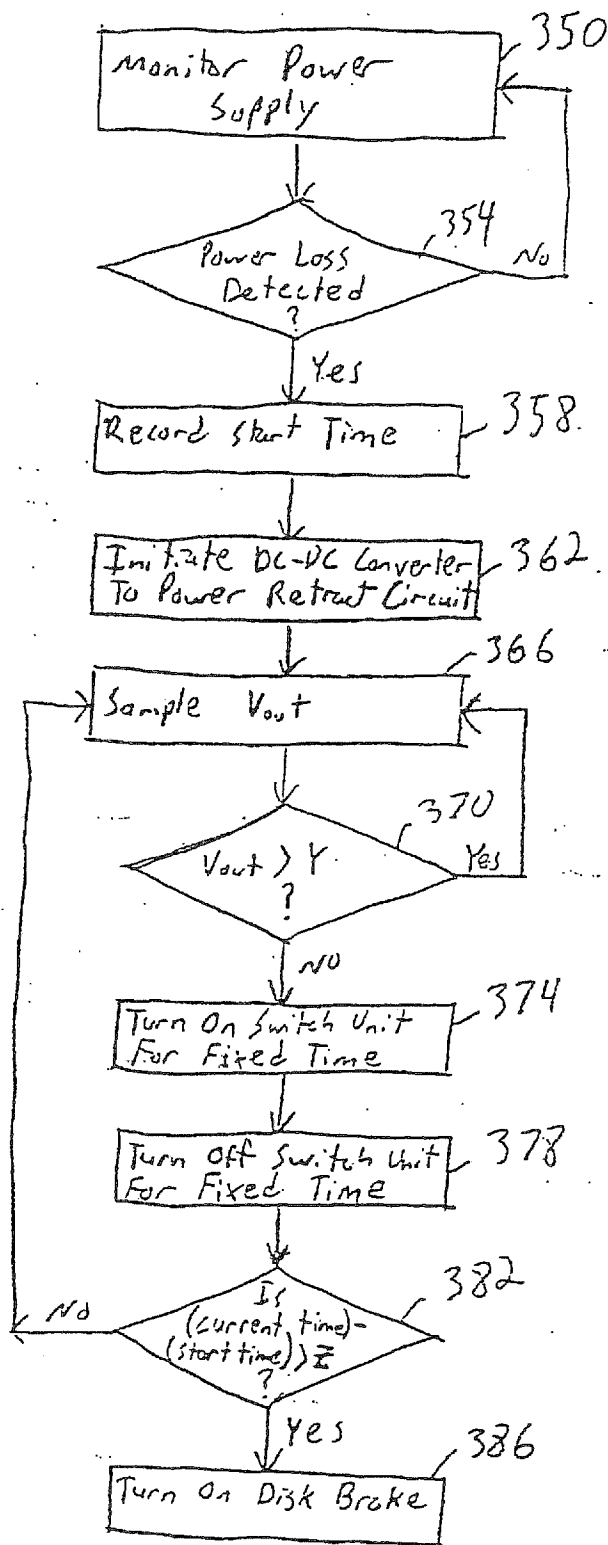 350
Monitor Power
Supply
354
Power Loss
Detected
?
No
Yes
Record Start Time
358
Initiate DC-DC Converter
To Power Retract Circuit
362
366
Sample Vout
370
Vout > Y
?
Yes
NO
374
Turn On Switch Unit
For Fixed Time
378
Turn Off Switch Unit
For Fixed Time
382
Is
(current time)-
(start time) > Z
?
No
Yes
386
Turn On Disk Brake